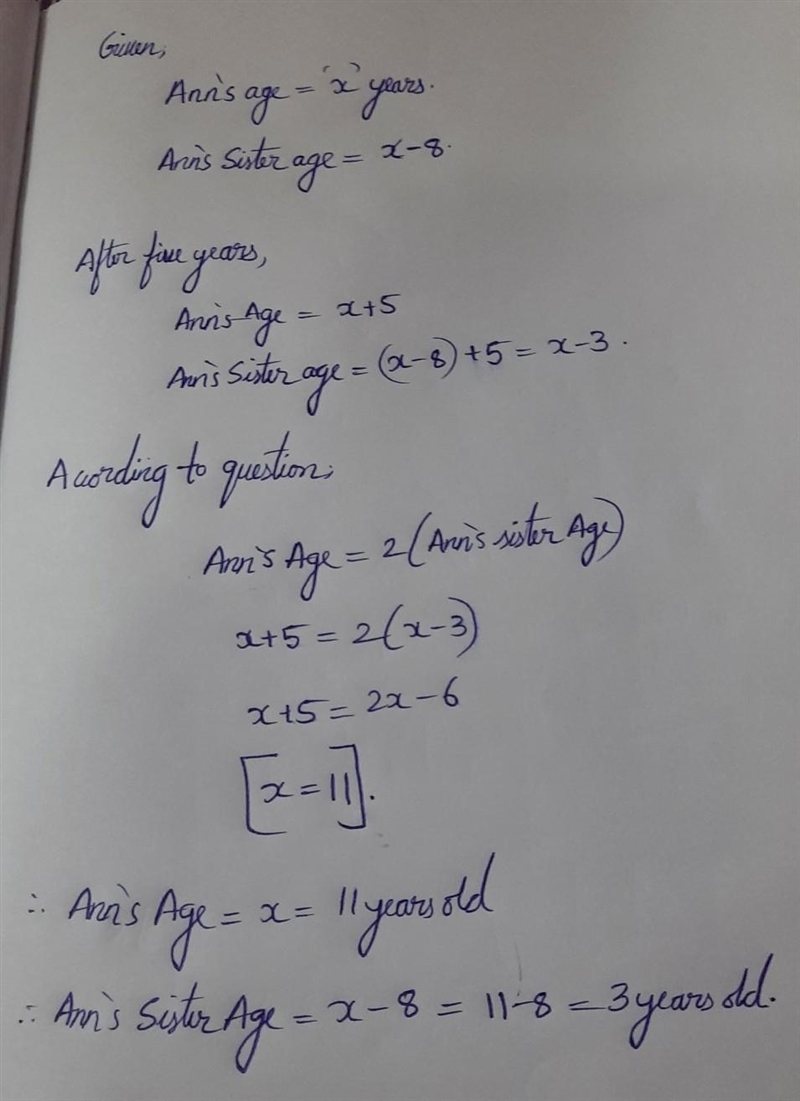 Given,
Ann's age = 'x' years.
Ann's Sister age = x-8.
After five years,
Ann's Age = x+5
Ann's Sister age = (x-8)+5 = x-3.
Acording to question,
Ann's Age = 2(Ann's sister Age)
x+5 = 2(x-3)
x+5 = 2x-6
[x = 11].
∴ Ann's Age = x = 11 years old
∴ Ann's Sister Age = x-8 = 11-8 = 3 years old.